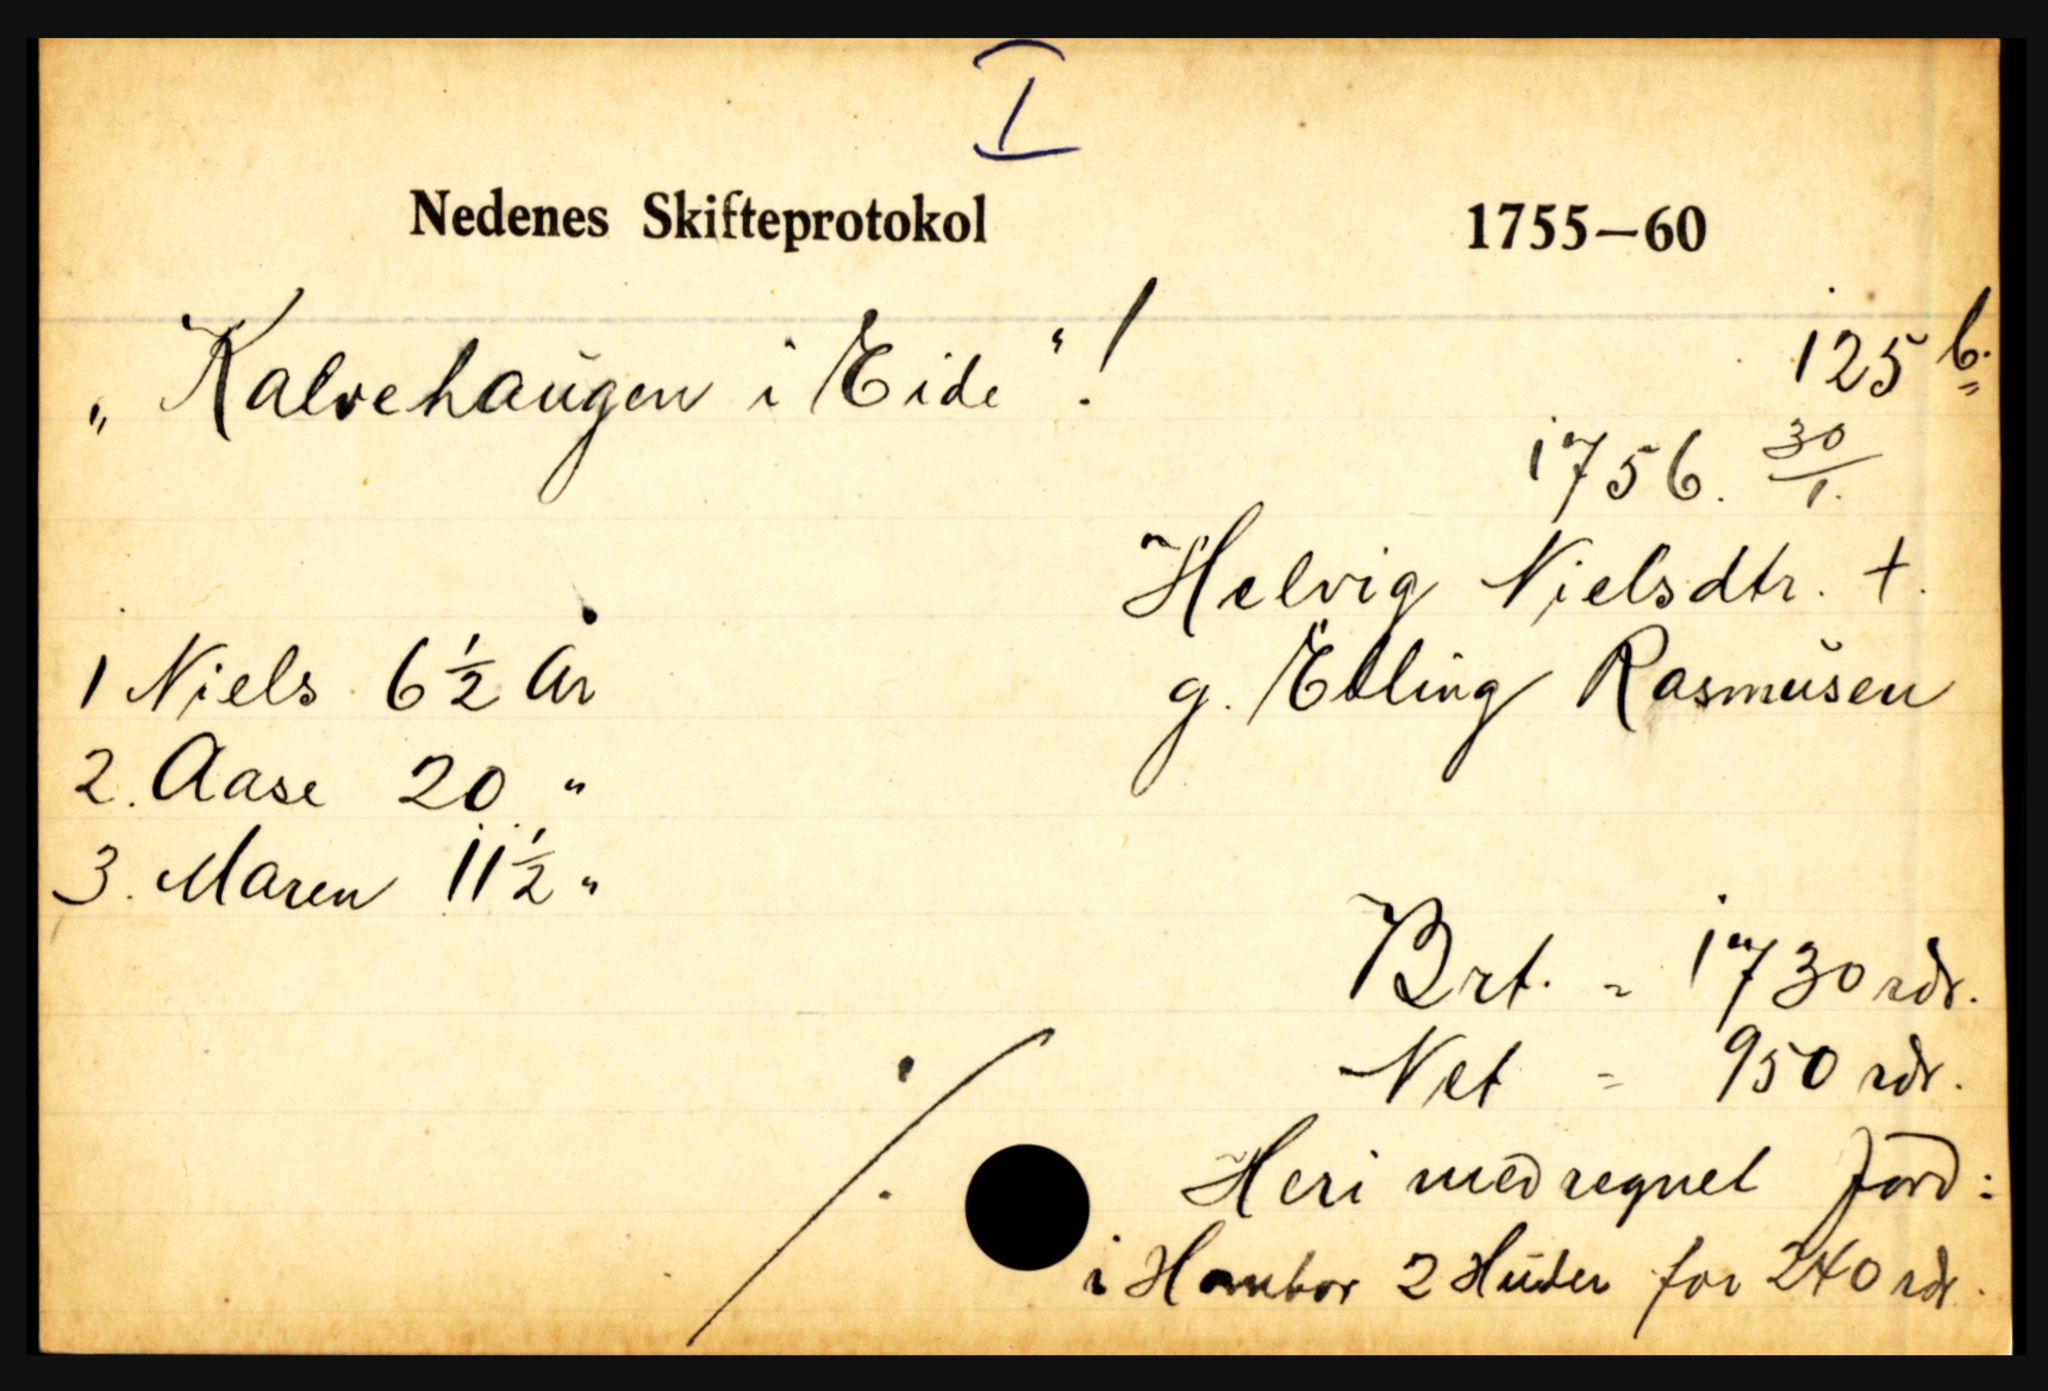 I
Nedenes Skifteprotokol 1755—60
„Kalvehaugen i Eide“! 125 b.
1756. 30/1.
Helvig Nielsdtr. +.
1 Niels 6½ år g. Elling Rasmusen
2. Aase 20 "
3. Maren 11½ "
Brt. = 1730 rdr.
Net = 950 rdr.
Heri medregnet Jord:
i 2 Huder for 240 rdr.